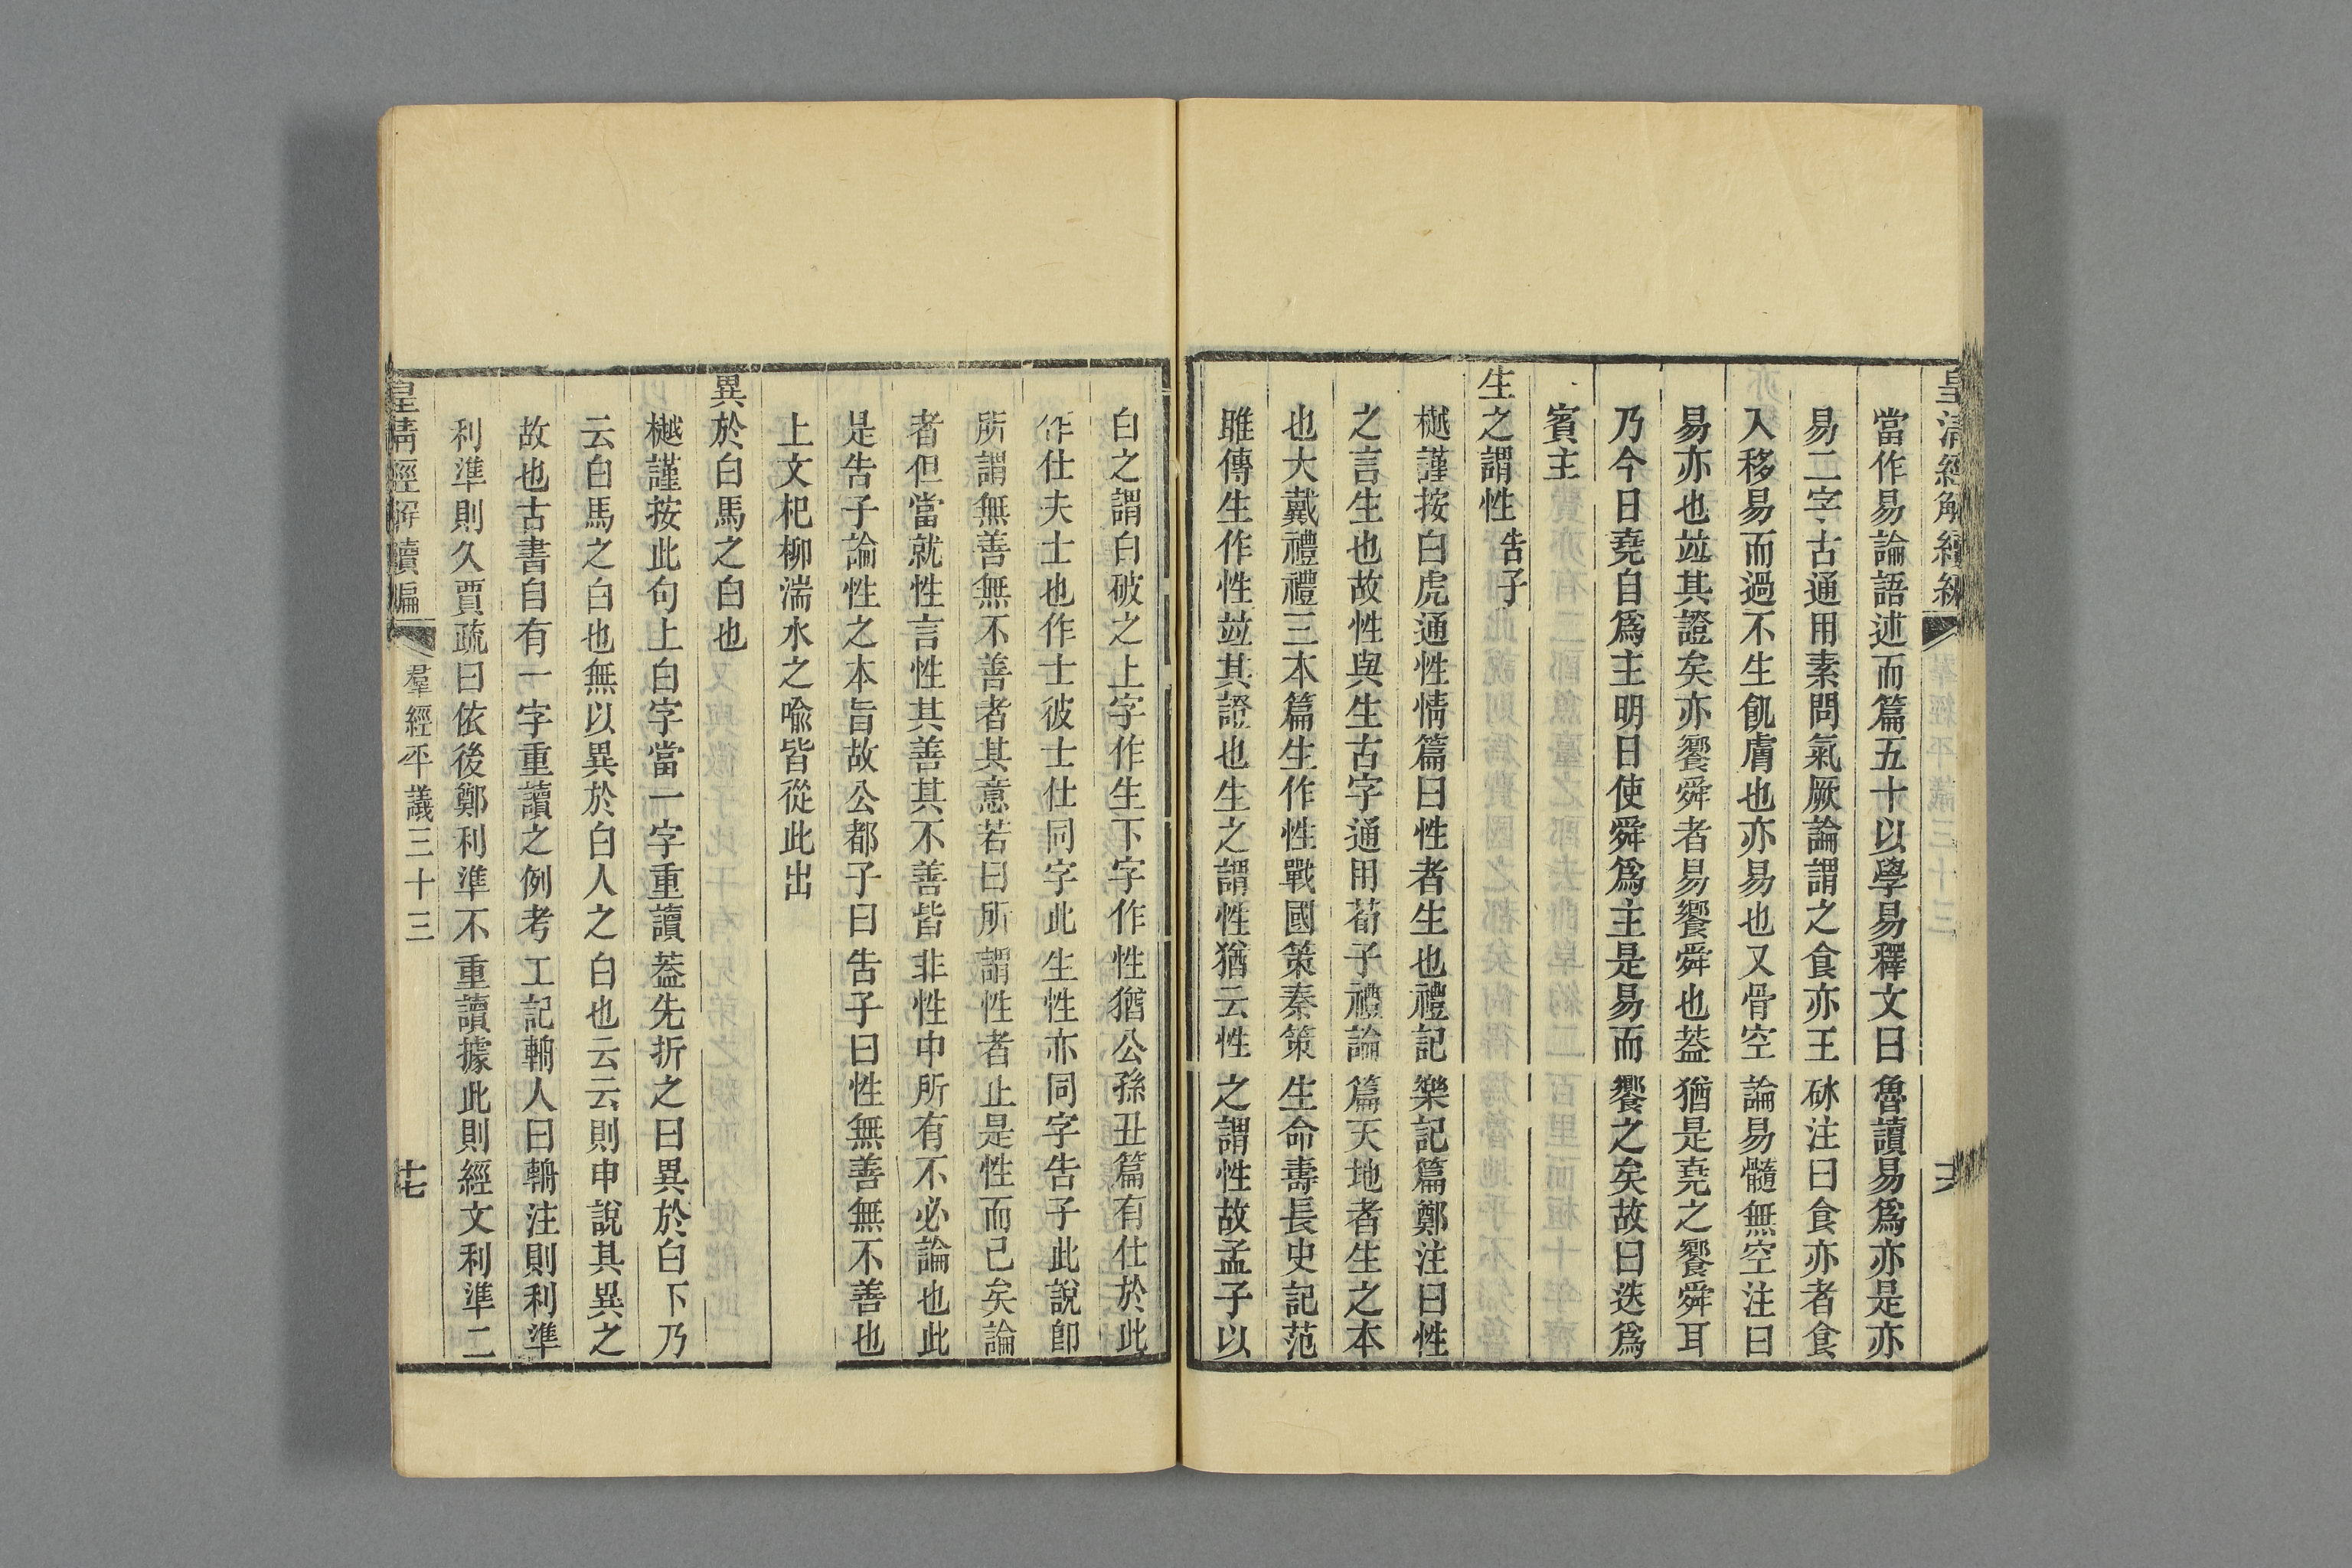 當作易論語述而篇五十以學易釋文曰魯讀易爲亦是亦
易二字古通用素問氣厥論謂之食亦王砅注曰食亦者食
入移易而過不生飢膚也亦易也又骨空論易髓無空注曰
易亦也竝其證矣亦饗舜者易饗舜也葢猶是堯之饗舜耳
乃今日堯自爲主明日使舜爲主是易而饗之矣故曰迭爲
賓主
生之謂性告子
樾謹按白虎通性情篇曰性者生也禮記樂記篇鄭注曰性
之言生也故性與生古字通用荀子禮論篇天地者生之本
也大戴禮禮三本篇生作性戰國策秦策生命壽長史記范
雎傳生作性竝其證也生之謂性猶云性之謂性故孟子以
白之謂白破之上字作生下字作性猶公孫丑篇有仕於此
作仕夫士也作士彼士仕同字此生性亦同字告子此說卽
所謂無善無不善者其意若曰所謂性者止是性而已矣論
者但當就性言性其善其不善皆非性中所有不必論也此
是告子論性之本旨故公都子曰告子曰性無善無不善也
上文杞柳湍水之喩皆從此出
異於白馬之白也
樾謹按此句上白字當一字重讀葢先折之曰異於白下乃
云白馬之白也無以異於白人之白也云云則申說其異之
故也古書自有一字重讀之例考工記輈人曰輈注則利準
利準則久賈疏曰依後鄭利準不重讀據此則經文利準二
皇清經解續編
羣經平議三十三
十七